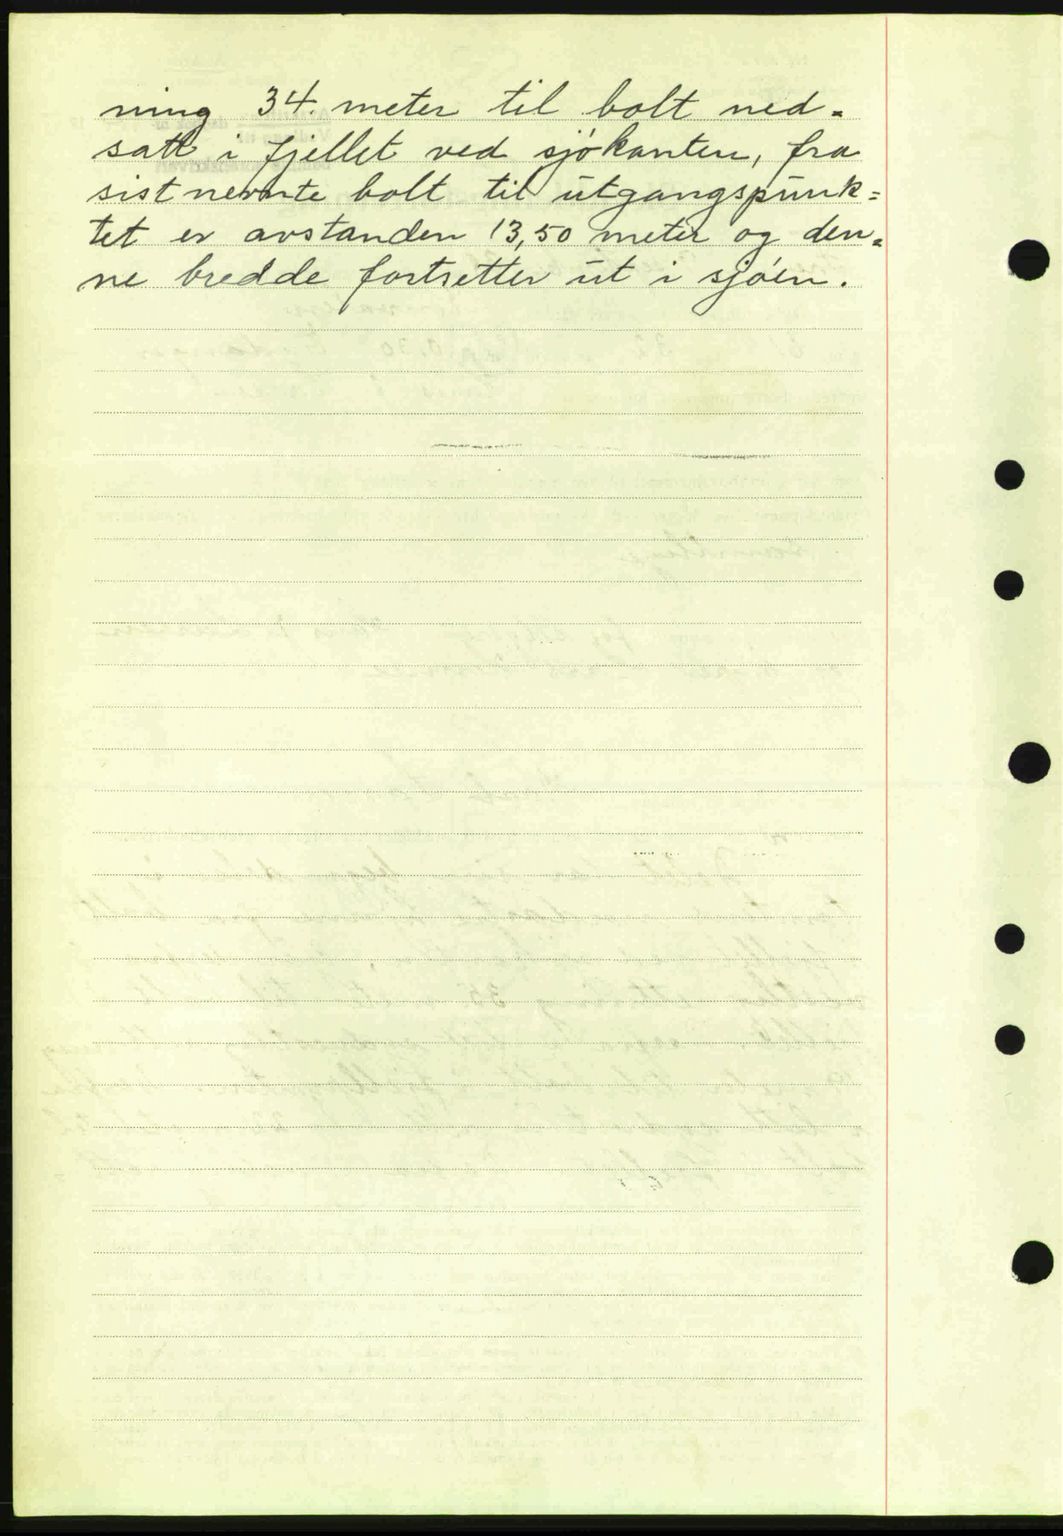 ning 34. meter til bolt ned=
satt i fjellet ved sjøkanten, fra
sistnevnte bolt til utgangspunk=
tet er avstanden 13,50 meter og den=
ne bredde fortsetter ut i sjøen.